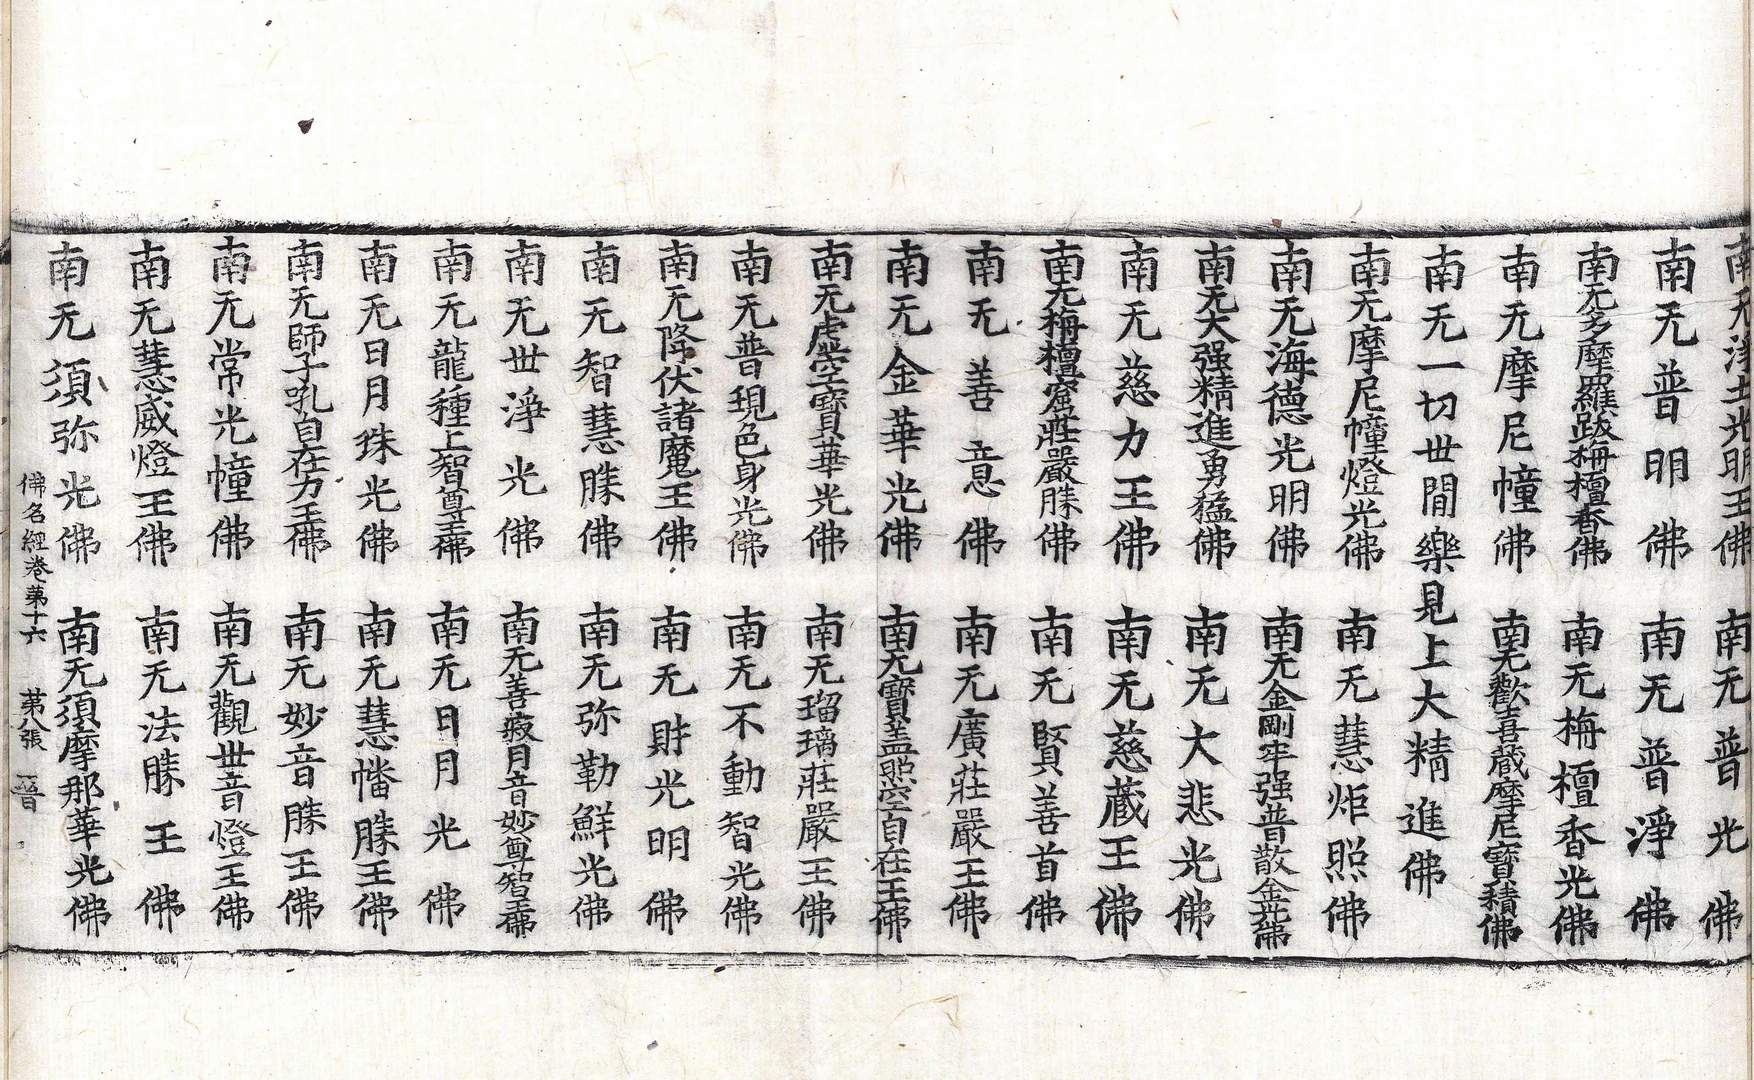 南无淨土光明王佛　南无普光佛
南无普明佛　南无普淨佛
南无多摩羅跋栴檀香佛　南无栴檀香光佛
南无摩尼幢佛　南无歡喜蔵摩尼寶積佛
南无一切世間樂見上大精進佛
南无摩尼幢燈光佛　南无慧炬照佛
南无海德光明佛　南无金剛牢强普散金光佛
南无大强精進勇猛佛　南无大悲光佛
南无慈力王佛　南无慈蔵王佛
南无栴檀窟莊嚴勝佛　南无賢善首佛
南无善意佛　南无廣莊嚴王佛
南无金華光佛　南无寶盖照空自在王佛
南无虛空寶華光佛　南无瑠璃莊嚴王佛
南无普現色身光佛　南无不動智光佛
南无降伏諸魔王佛　南无財光明佛
南无智慧勝佛　南无弥勒鮮光佛
南无世淨光佛　南无善寂月音妙尊智王佛
南无龍種上智尊王佛　南无日月光佛
南无日月珠光佛　南无慧幡勝王佛
南无師子吼自在力王佛　南无妙音勝王佛
南无常光幢佛　南无觀世音燈王佛
南无慧威燈王佛　南无法勝王佛
南无須弥光佛　南无須摩那華光佛
佛名經卷苐十六　苐八張　晉